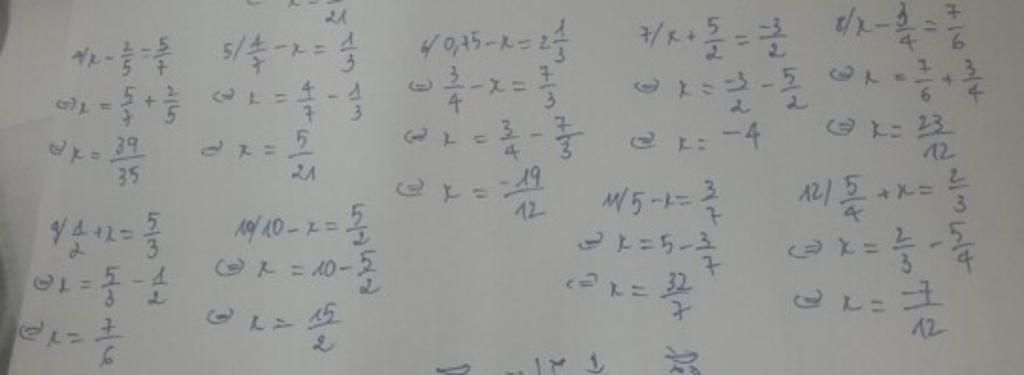 21
4/ x - 2/5 = 5/7
⇔ x = 5/7 + 2/5
⇔ x = 39/35
5/ 4/7 - x = 1/3
⇔ x = 4/7 - 1/3
⇔ x = 5/21
6/ 0,75 - x = 2 1/3
⇔ 3/4 - x = 7/3
⇔ x = 3/4 - 7/3
⇔ x = -19/12
7/ x + 5/2 = -3/2
⇔ x = -3/2 - 5/2
⇔ x = -4
8/ x - 3/4 = 7/6
⇔ x = 7/6 + 3/4
⇔ x = 23/12
9/ 1/2 + x = 5/3
⇔ x = 5/3 - 1/2
⇔ x = 7/6
10/ 10 - x = 5/2
⇔ x = 10 - 5/2
⇔ x = 15/2
11/ 5 - x = 3/7
⇔ x = 5 - 3/7
⇔ x = 32/7
12/ 5/4 + x = 2/3
⇔ x = 2/3 - 5/4
⇔ x = -7/12